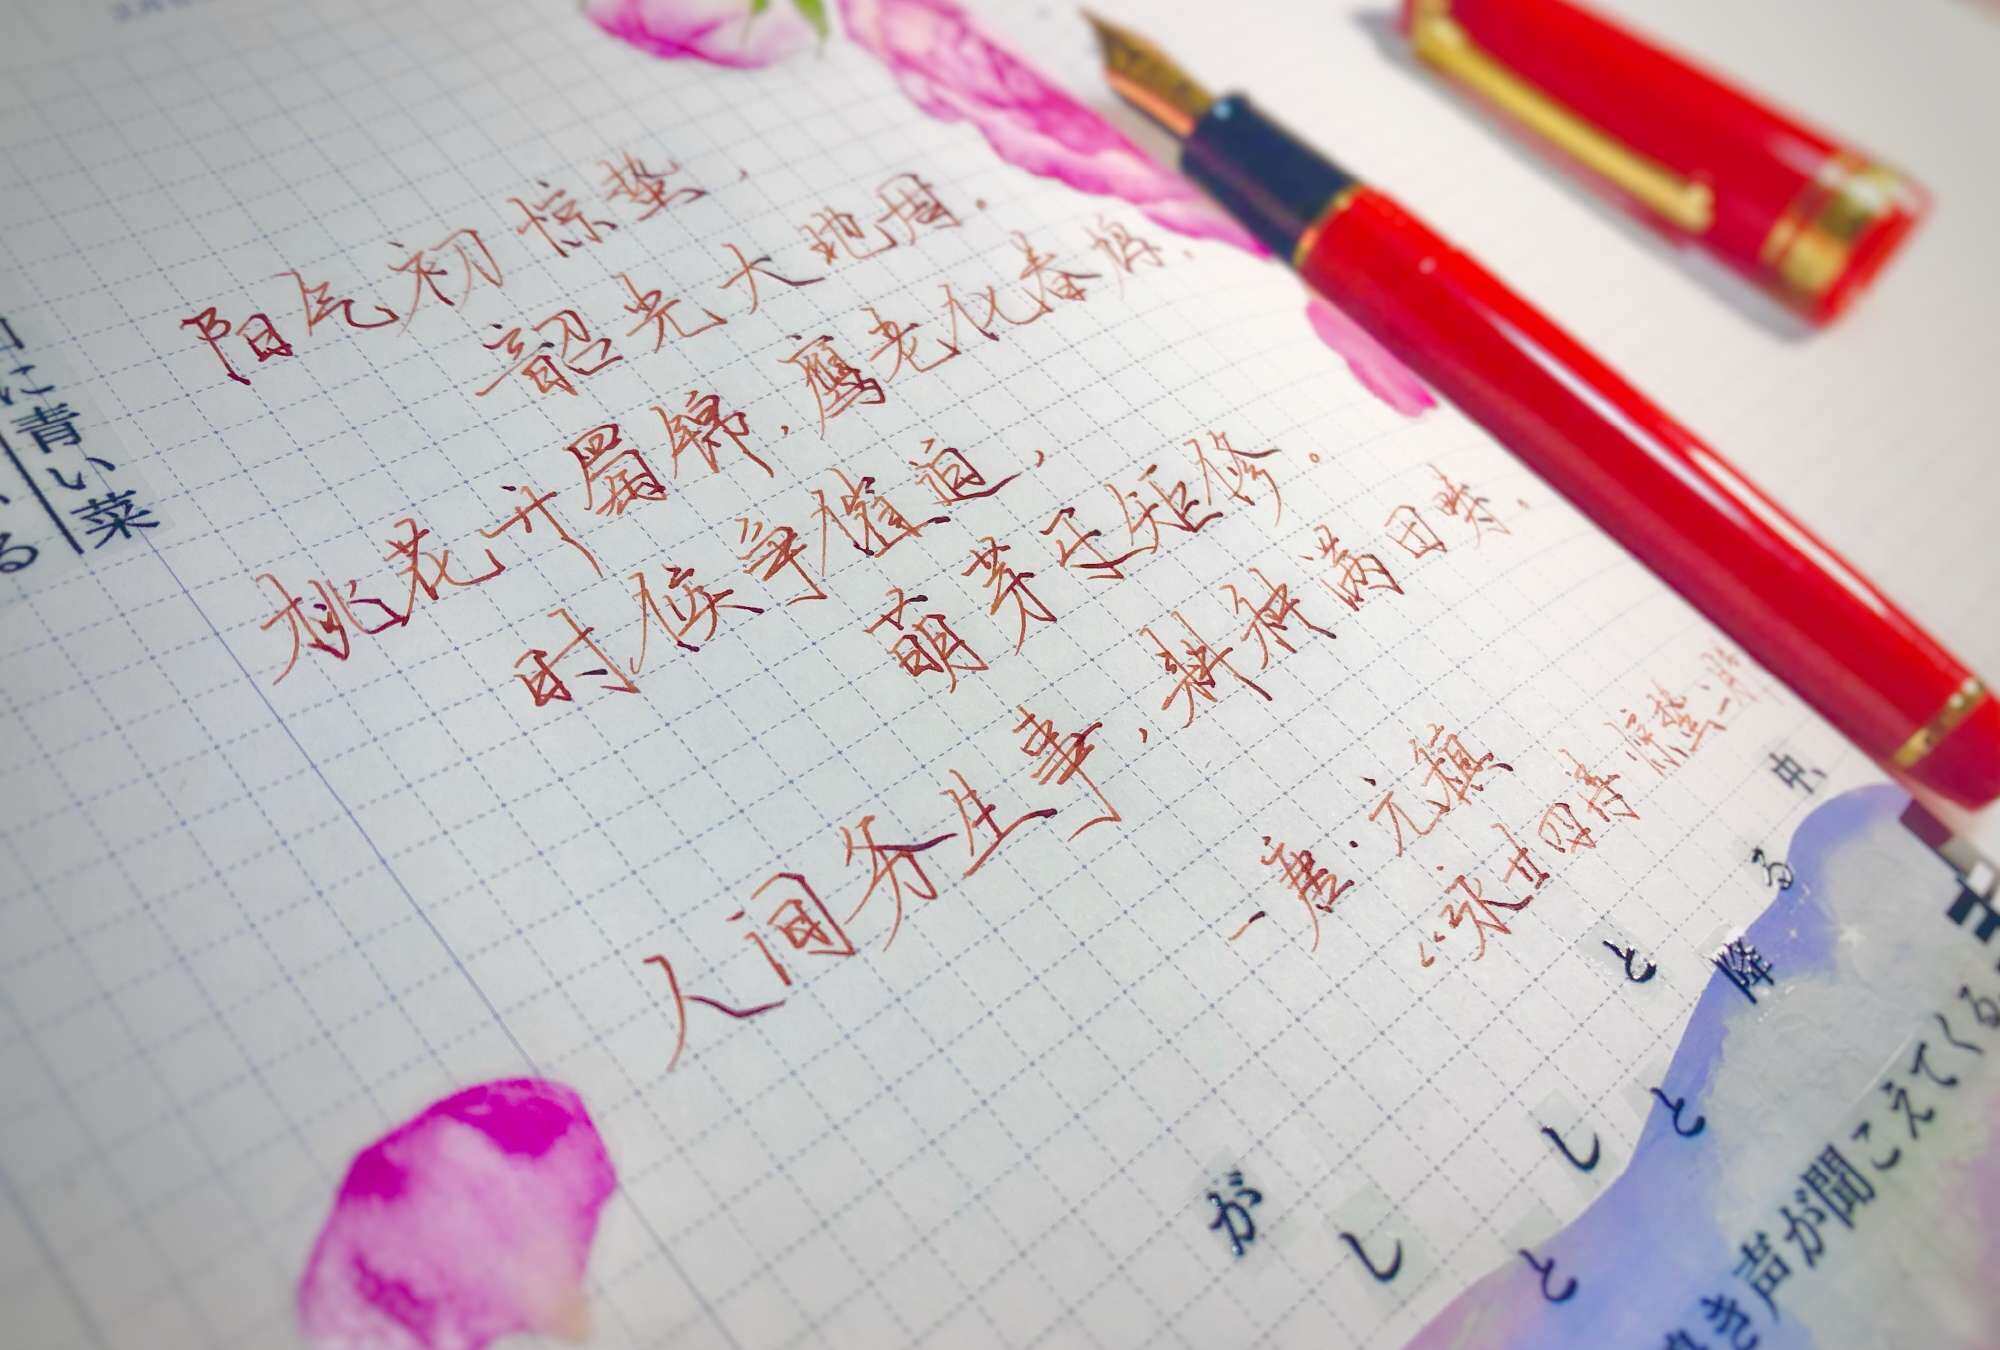 阳气初惊蛰，
韶光大地周。
桃花开蜀锦，鹰老化春鸠。
时候争催迫，
萌芽互矩修。
人间务生事，耕种满田畴。
—唐·元稹
《咏廿四诗·惊蛰二月
に青い菜
る
が
しと
しと
と降
る
中、
き声が聞こえてくる